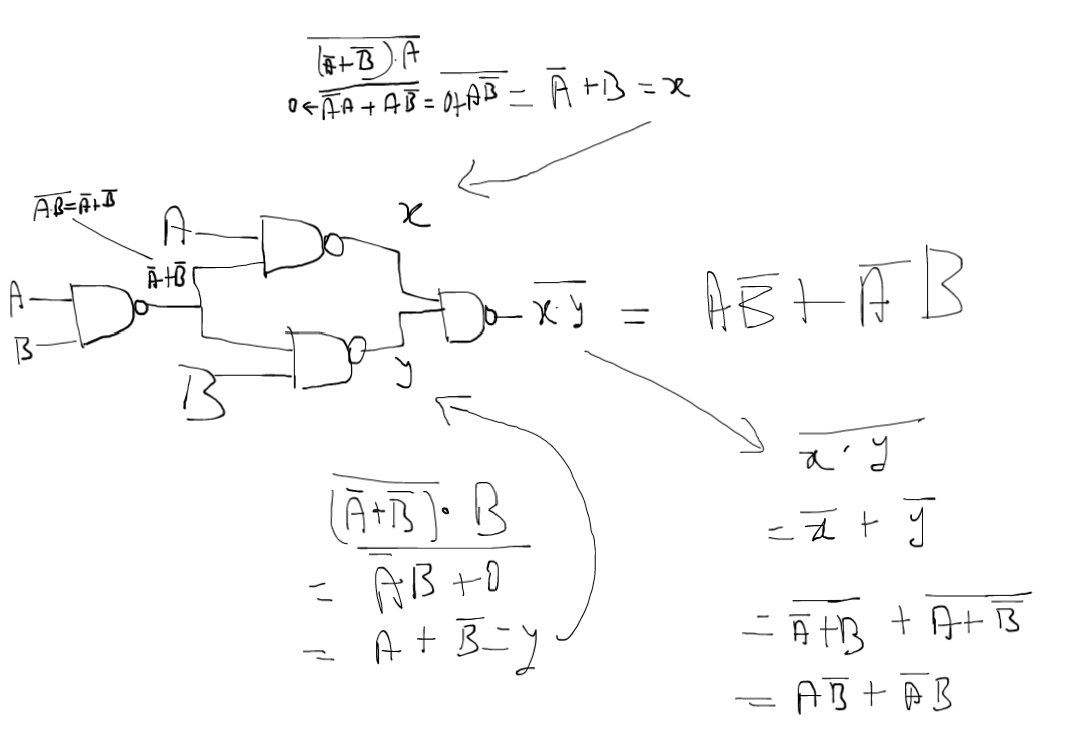 (A̅+B̅)·A
0←A̅A + AB̅ = 0+AB̅ = A̅ + B = x
A·B = A̅+B̅
A
x
A̅+B̅
A
B
x·y = AB̅ + A̅B
B
y
(A̅+B̅)·B
= A̅B + 0
= A + B̅ = y
x·y
= x̅ + y̅
= A̅+B + A+B̅
= AB̅ + A̅B